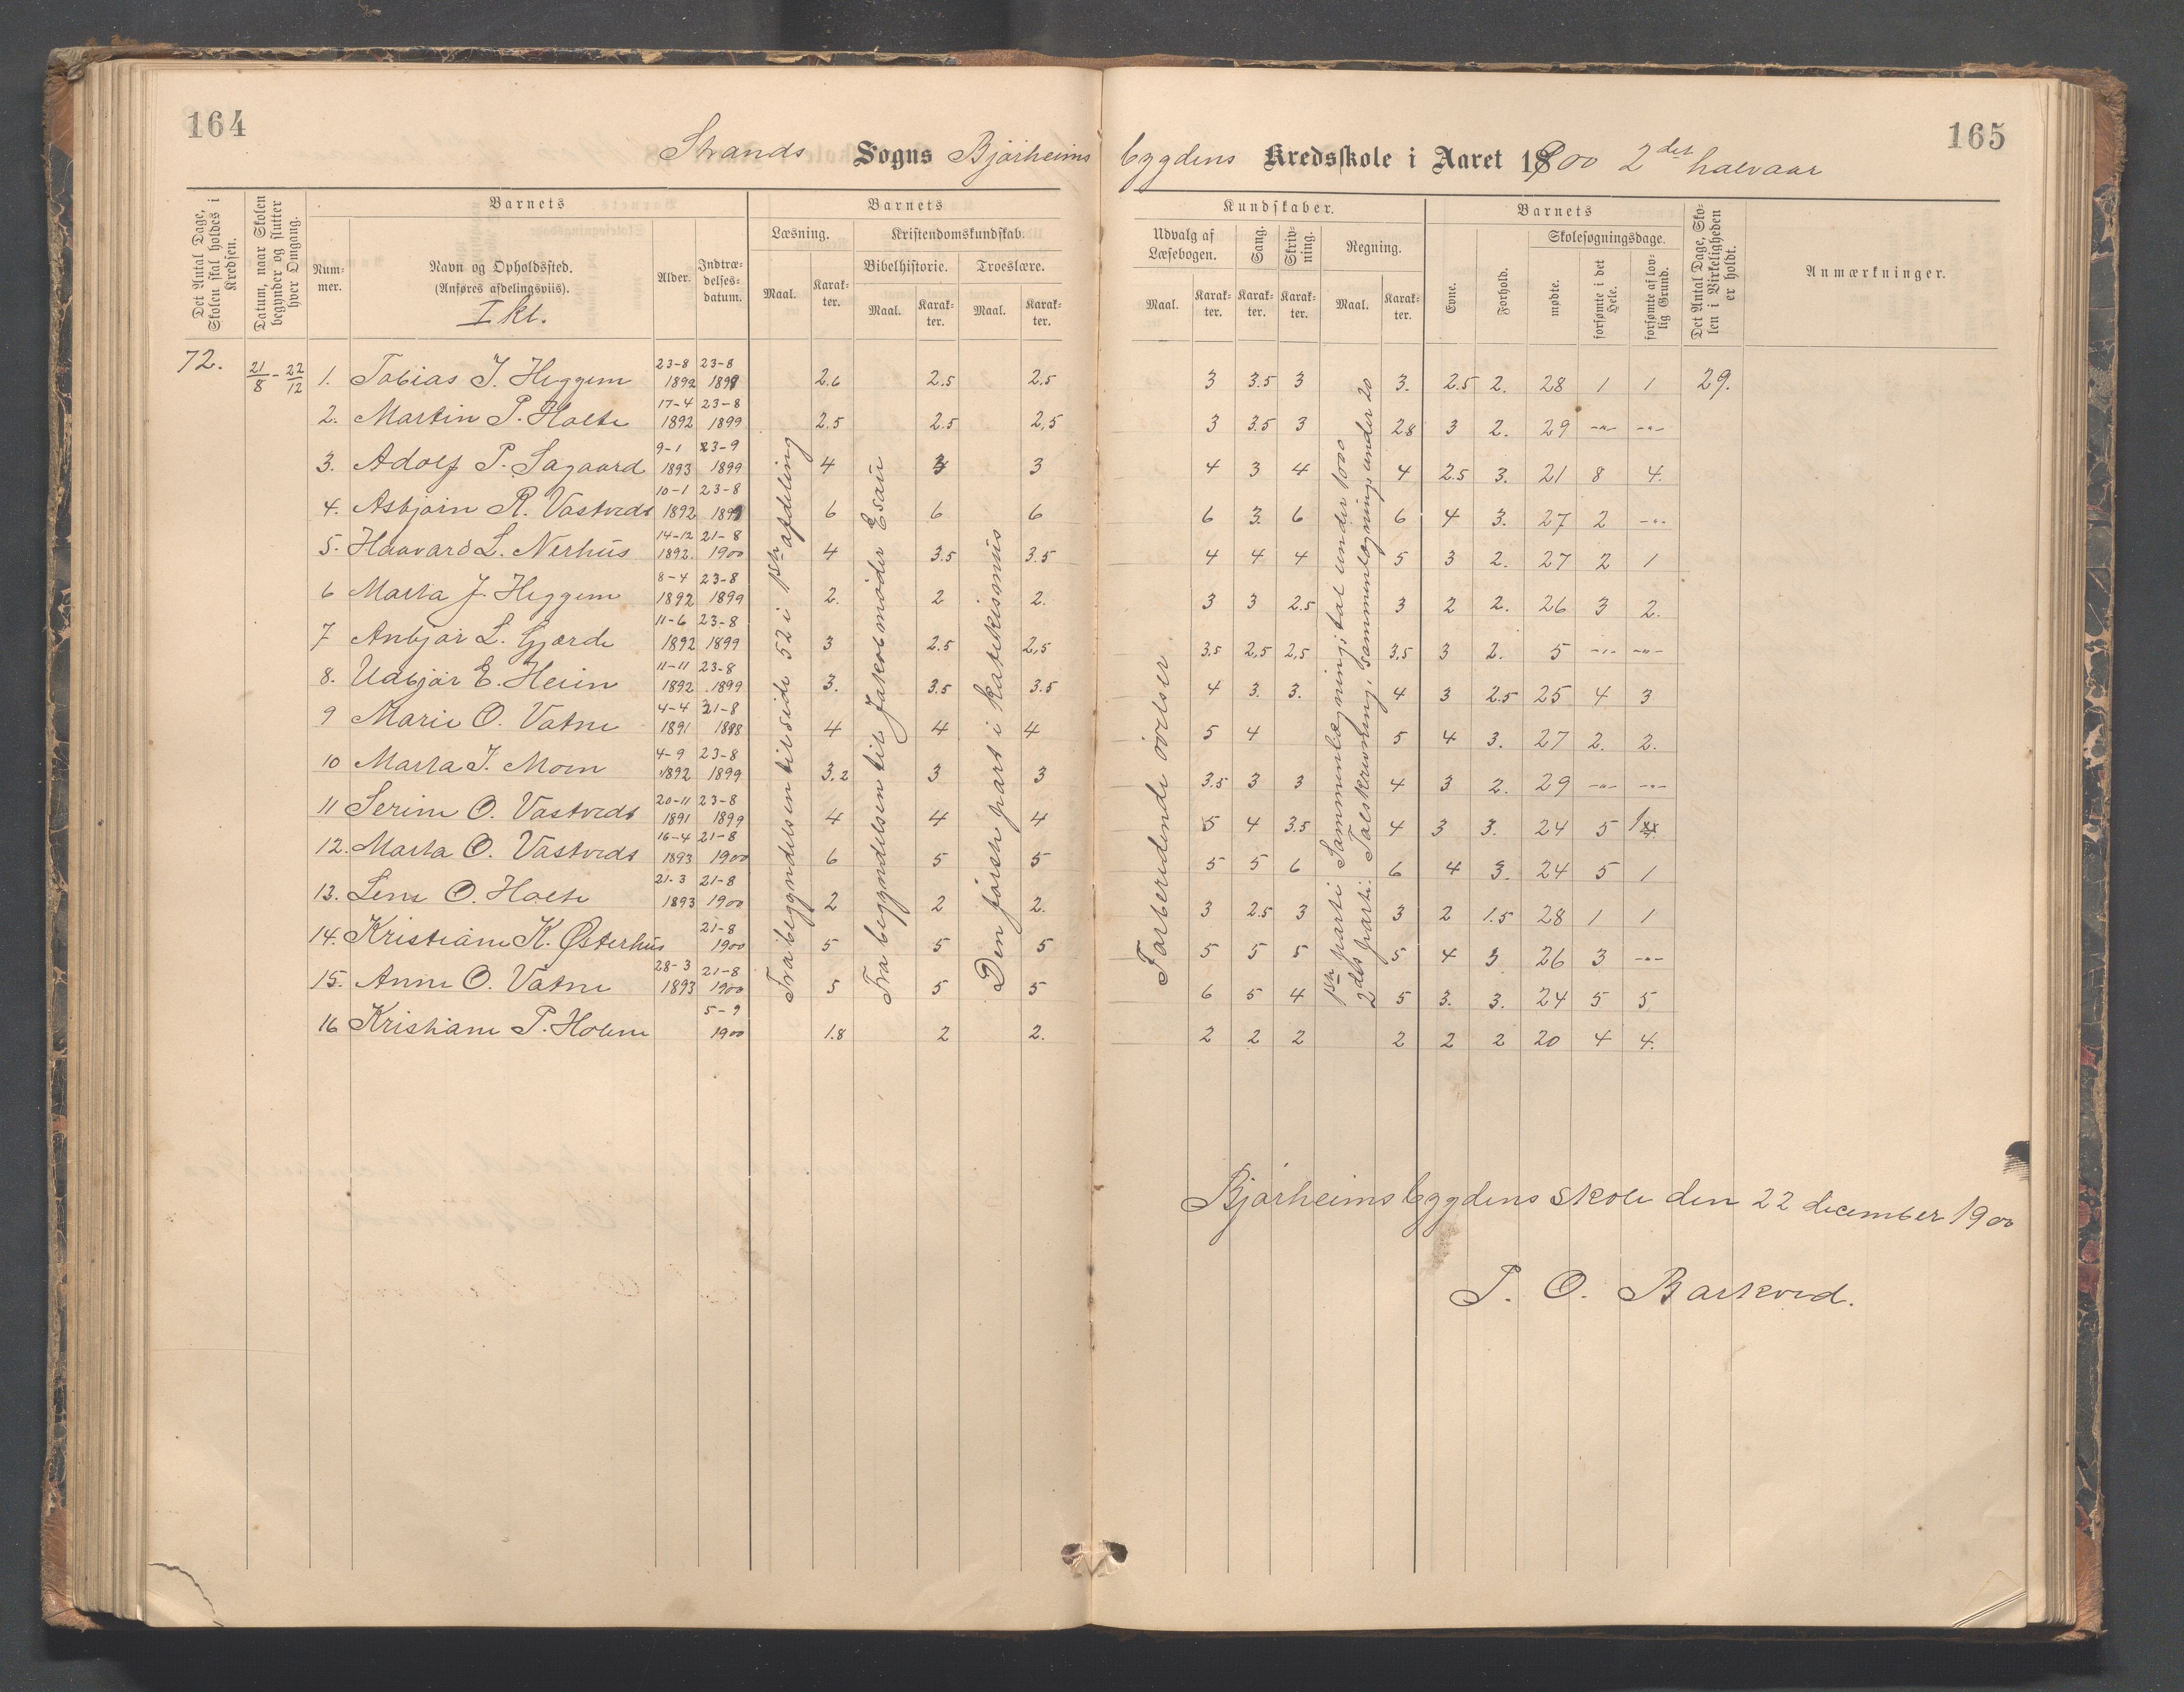 164
165
Strands Sogns Bjørheimsbygdens Kredsskole i Aaret 1900 2det halvaar
Det Antal Dage, Skolen skal holdes i Kredsen.
Datum, naar Skolen begynder og slutter hver Omgang.
Barnets
Nummer.
Navn og Opholdssted. (Anføres afdelingsviis).
I kl.
Alder.
Indtrædelsesdatum.
Barnets
Læsning.
Kristendomskundskab.
Bibelhistorie.
Troeslære.
Maal.
Karakter.
Maal.
Karakter.
Maal.
Karakter.
Kundskaber.
Udvalg af Læsebogen.
Sang.
Skrivning.
Regning.
Maal.
Karakter.
Karakter.
Karakter.
Maal.
Karakter.
Barnets
Evne.
Forhold.
Skolesøgningsdage.
mødte.
forsømte i det Hele.
forsømte af lovlig Grund.
Det Antal Dage, Skolen i Virkeligheden er holdt.
Anmærkninger.
72. 21/8 - 22/12
1. Tobias J. Heggem 23-8 1892 23-8 1899 2.6 2.5 2.5 3 3.5 3 3. 2.5 2. 28 1 1 29.
2. Martin P. Holte 17-4 1892 23-8 1899 2.5 2.5 2,5 3 3.5 3 2.8 3 2. 29 -"- -"-
3. Adolf P. Sagaard 9-1 1893 23-9 1899 4 3 3 4 3 4 4 2.5 3. 21 8 4.
4. Asbjørn R. Vastveds 10-1 1892 23-8 1899 6 6 6 6 3. 6 6 4 3. 27 2 -"-
5. Haavard L. Nerhus 14-12 1892. 21-8 1900 4 3.5 3.5 4 4 4 5 3 2. 27 2 1
6 Marta J. Heggem 8-4 1892 23-8 1899 2. 2 2. 3 3 2.5 3 2 2. 26 3 2.
7 Anbjør L. Gjærde 11-6 1892 23-8 1899 3 2.5 2,5 3,5 2,5 2,5 3,5 3 2. 5 -"- -"-
8. Udbjør E. Heiin 11-11 1892 23-8 1899 3. 3.5 3.5 4 3. 3. 4 3 2.5 25 4 3
9 Marie O. Vatne 4-4 1891 21-8 1898 4 4 4 5 4 5 4 3. 27 2. 2.
10 Marta J. Moen 4-9 1892 23-8 1899 3.2 3 3 3.5 3 3 4 3 2. 29 -"- -"-
11 Serine O. Vastveds 20-11 1891 23-8 1899 4 4 4 5 4 3.5 4 3 3. 24 5 1
12. Marta O. Vastveds 16-4 1893 21-8 1900 6 5 5 5 5 6 6 4 3. 24 5 1
13. Lene O. Holte 21-3 1893 21-8 1900 2 2 2. 3 2.5 3 3 2 1.5 28 1 1
14. Kristiane K. Østerhus 21-8 1900 5 5 5 5 5 5 5 4 3 26 3 -"-
15. Anne O. Vatne 28-3 1893 21-8 1900 5 5 5 6 5 4 5 3. 3. 24 5 5
16 Kristiane P. Holme 5-9 1900 1.8 2 2. 2 2 2 2 2 2 20 4 4.
Fra begyndelsen til side 52 i 1ste afdeling
Fra begyndelsen til Jakob møder Esau
Den første part i Katekismus
Forberedende øvelser
1ste parti Sammenlægning, tal under 1000
2det parti: Talskrivning, sammenlægning under 20
Bjørheimsbygdens skole den 22 december 1900
P. O. Barkved.